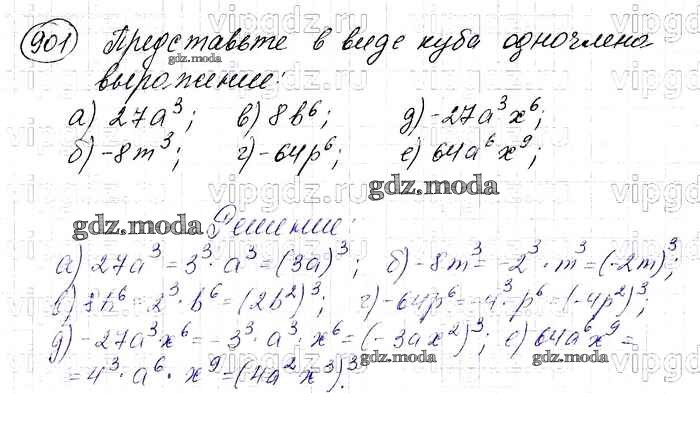 901 Представьте в виде куба одночлена
выражение:
а) 27a³; в) 8b⁶; д) -27a³x⁶;
б) -8m³; г) -64p⁶; е) 64a⁶x⁹;
Решение:
а) 27a³ = 3³ · a³ = (3a)³; б) -8m³ = -2³ · m³ = (-2m)³;
в) 8b⁶ = 2³ · b⁶ = (2b²)³; г) -64p⁶ = -4³ · p⁶ = (-4p²)³;
д) -27a³x⁶ = -3³ · a³ · x⁶ = (-3ax²)³; е) 64a⁶x⁹ =
= 4³ · a⁶ · x⁹ = (4a²x³)³.
gdz.moda
gdz.moda
gdz.moda
gdz.moda
gdz.moda
vipgdz.ru